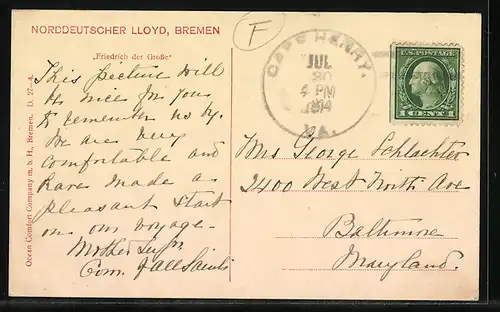 NORDDEUTSCHER LLOYD, BREMEN
F
"Friedrich der Große"
This picture will
be nice for you
to remember us by.
We are very
comfortable and
have made a
pleasant start
on our voyage.
Mother Supr
Com. of All Saints
Ocean Comfort Company m. b. H., Bremen. D. 27—4.
CAPE HENRY,
JUL
30
4 PM
1914
VA.
U.S. POSTAGE
1 CENT 1
Mrs George Schlachter
2400 West North Ave
Baltimore
Maryland.